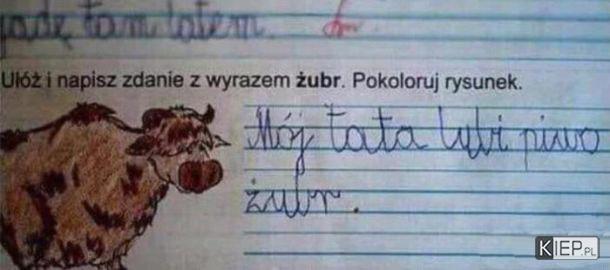 jadę tam latem.
Ułóż i napisz zdanie z wyrazem żubr. Pokoloruj rysunek.
Mój tata lubi piwo
żubr.
KIEP.PL